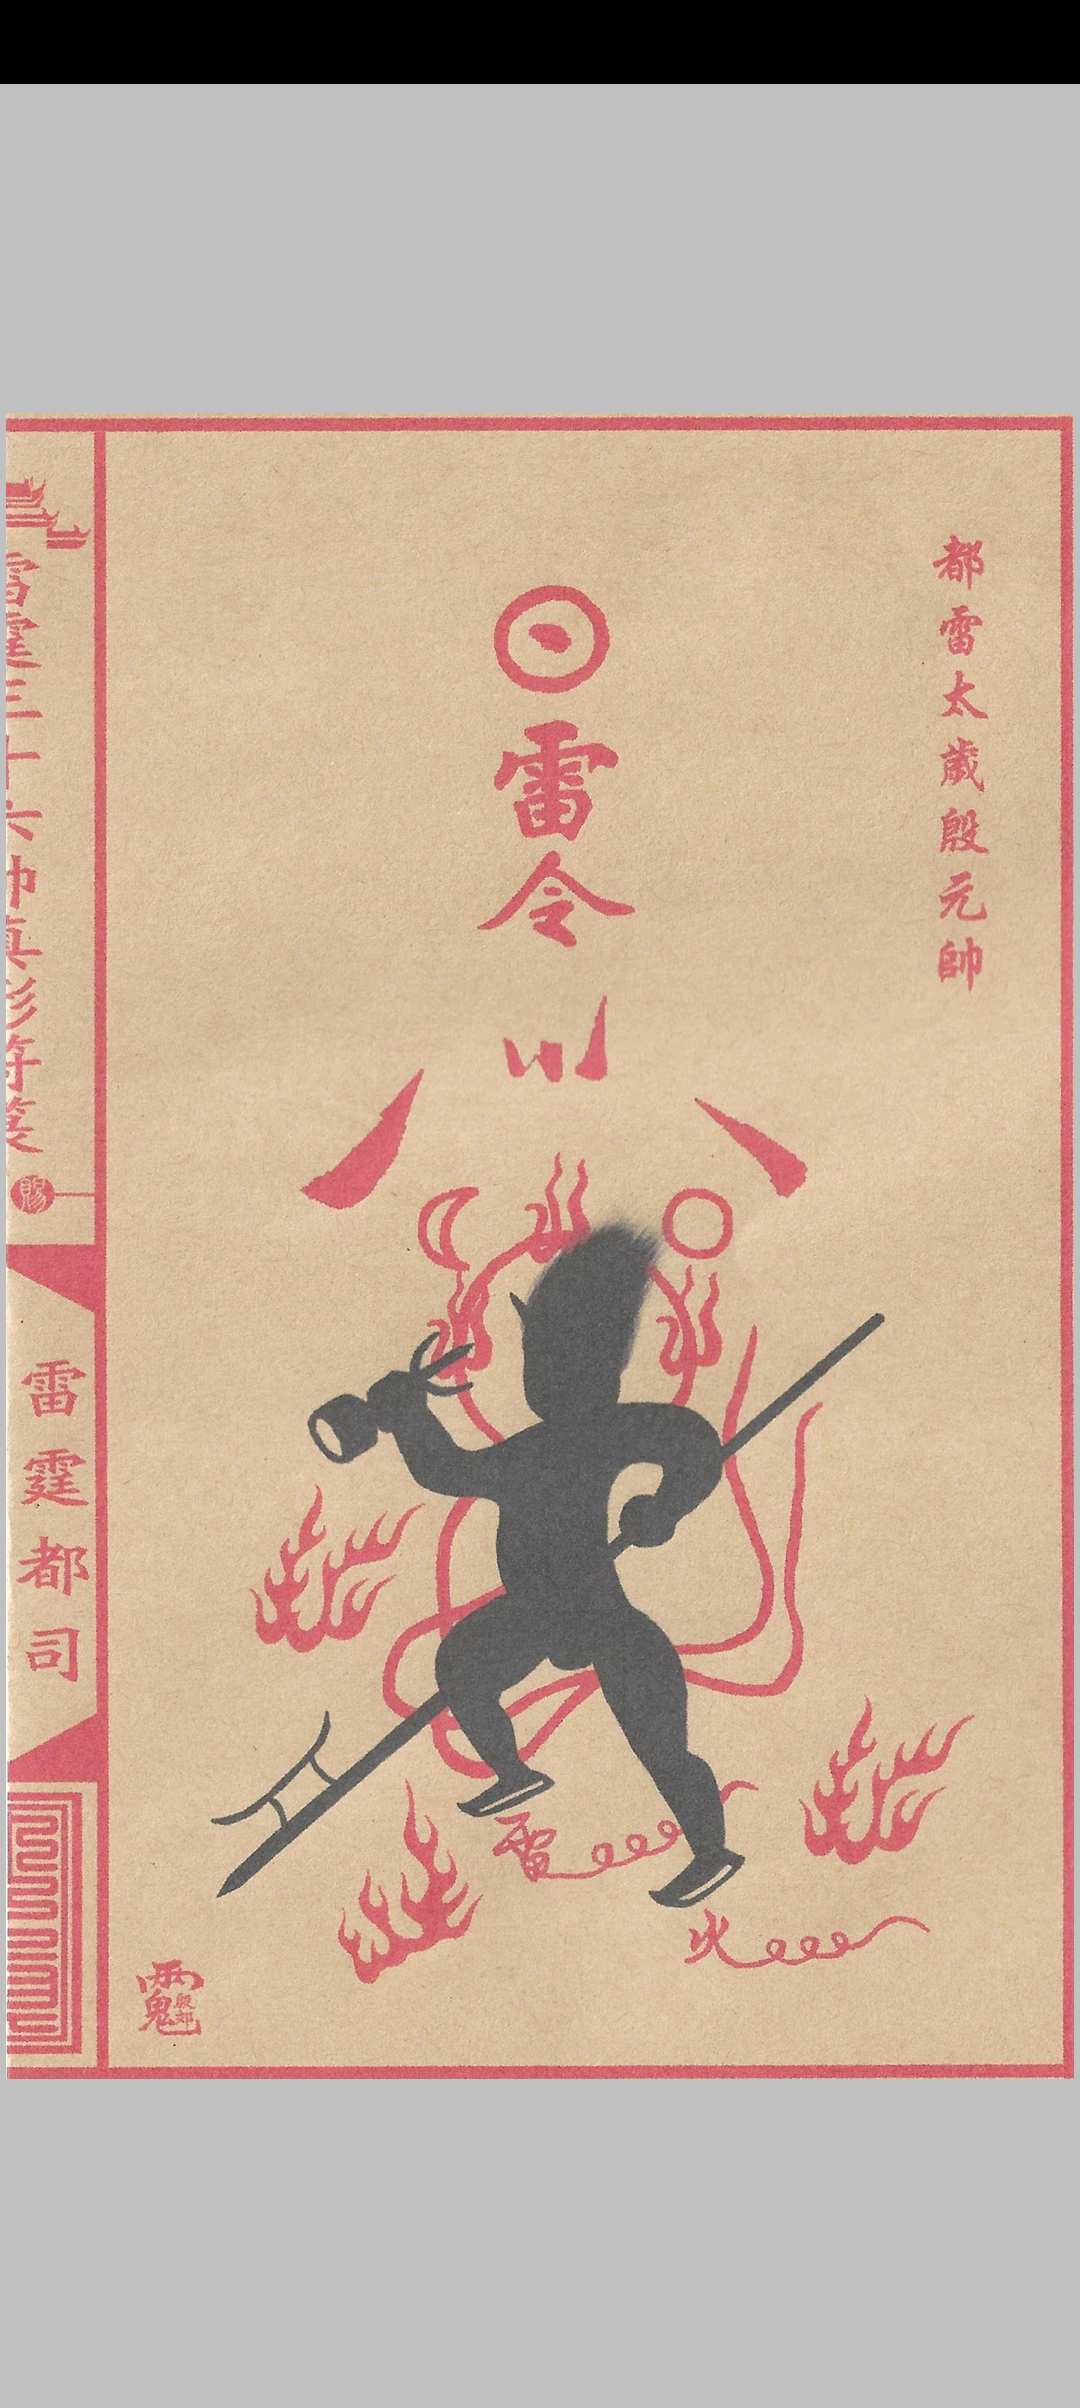 都雷太歲殷元帥
雷令
雷
火
殷郊
雷霆三十六帥真形符箋
賜
雷霆都司